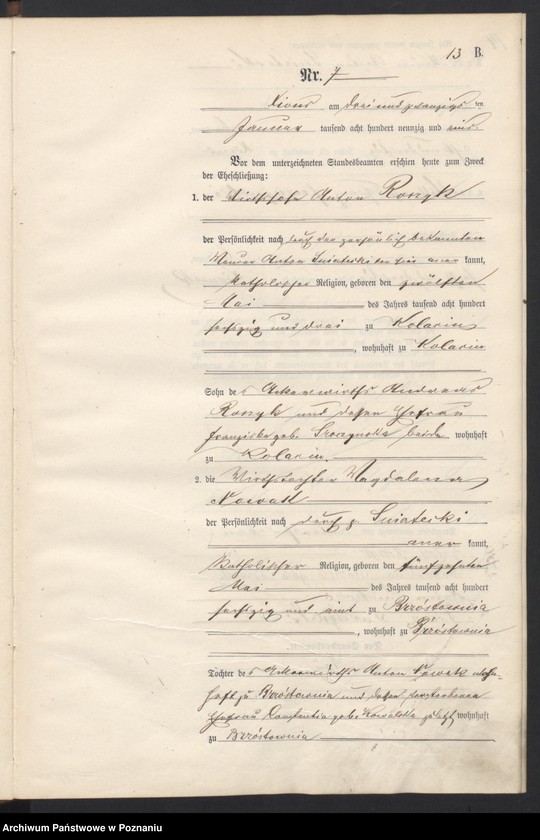 13 B.
Nr. 7
am drei und zwanzigsten
Januar tausend acht hundert neunzig und eins.
Vor dem unterzeichneten Standesbeamten erschien heute zum Zweck
der Eheschließung:
1. der Wirthssohn Anton Roszyk
der Persönlichkeit nach durch den persönlich bekannten
Anton kannt,
katholischer Religion, geboren den zwölften
Mai des Jahres tausend acht hundert
sechszig und drei zu Kolacin
, wohnhaft zu Kolacin
Sohn des Ackerwirths Andreas
Roszyk und dessen Ehefrau
Franziska geb. beide wohnhaft
zu Kolacin.
2. die Wirthstochter Magdalena
Nowak
der Persönlichkeit nach durch p.
kannt,
katholischer Religion, geboren den fünfzehnten
Mai des Jahres tausend acht hundert
sechszig und acht zu Brzóstownia
, wohnhaft zu Brzóstownia
Tochter des Ackerwirths Anton Nowak wohn-
haft zu Brzóstownia und dessen verstorbenen
Ehefrau Konstantia geb. Kowalska zuletzt wohnhaft
zu Brzóstownia
Archiwum Państwowe w Poznaniu